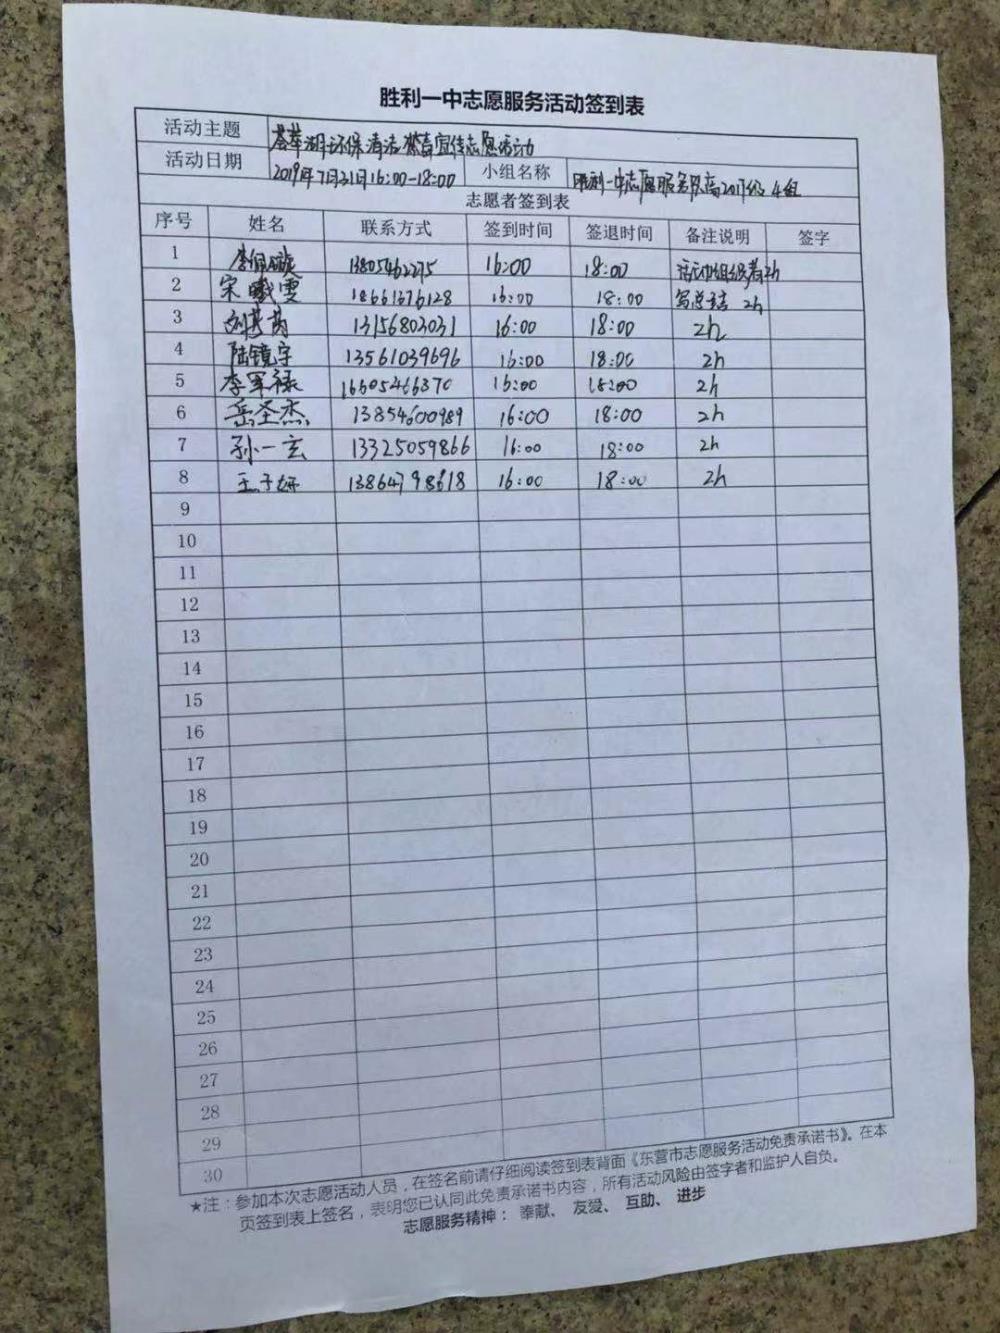 胜利一中志愿服务活动签到表
活动主题 荟萃湖环保清洁 志愿活动
活动日期 2019年7月31日16:00-18:00 小组名称 胜利一中志愿服务 高2017级 4组
志愿者签到表
序号 姓名 联系方式 签到时间 签退时间 备注说明 签字
1 李佩璇 13805462275 16:00 18:00 活动组织者2h
2 宋曦雯 18661376128 16:00 18:00 写总结 2h
3 刘 13156803031 16:00 18:00 2h
4 陆镜宇 13561039696 16:00 18:00 2h
5 李军禄 16605466370 16:00 18:00 2h
6 岳圣杰 13854600989 16:00 18:00 2h
7 孙一玄 13325059866 16:00 18:00 2h
8 王子妍 13864798618 16:00 18:00 2h
9
10
11
12
13
14
15
16
17
18
19
20
21
22
23
24
25
26
27
28
29
30
★注：参加本次志愿活动人员，在签名前请仔细阅读签到表背面《东营市志愿服务活动免责承诺书》。在本
页签到表上签名，表明您已认同此免责承诺书内容，所有活动风险由签字者和监护人自负。
志愿服务精神：奉献、友爱、互助、进步